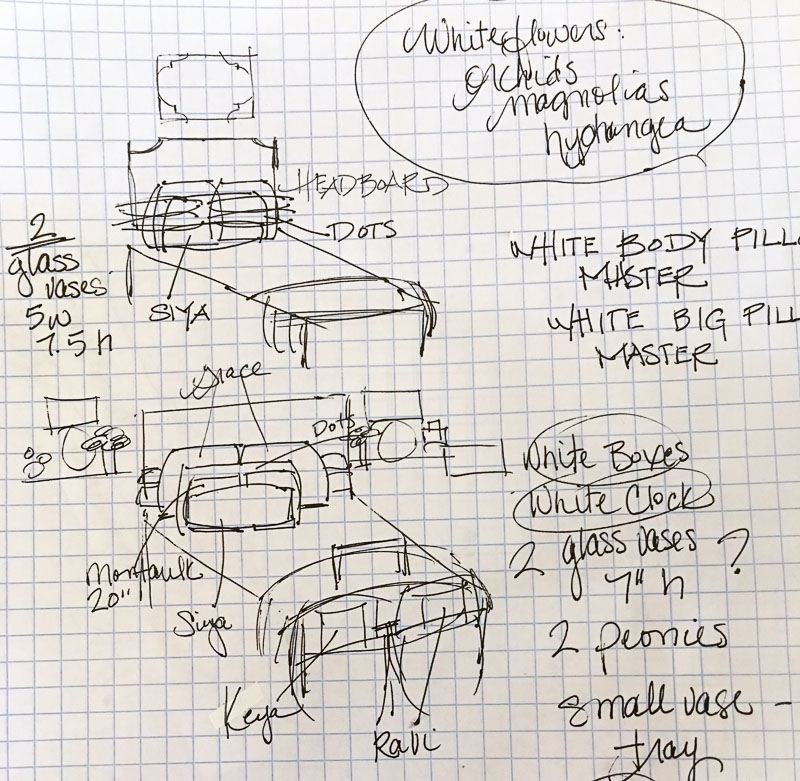 White flowers:
orchids
magnolias
hydrangea
HEADBOARD
DOTS
SIYA
2
glass
vases
5w
7.5 h
WHITE BODY PILL
MASTER
WHITE BIG PILL
MASTER
Grace
Dots
Montauk
20"
Siya
Keya
Ravi
White Boxes
White Clock
2 glass vases ?
7" h
2 peonies
small vase -
tray